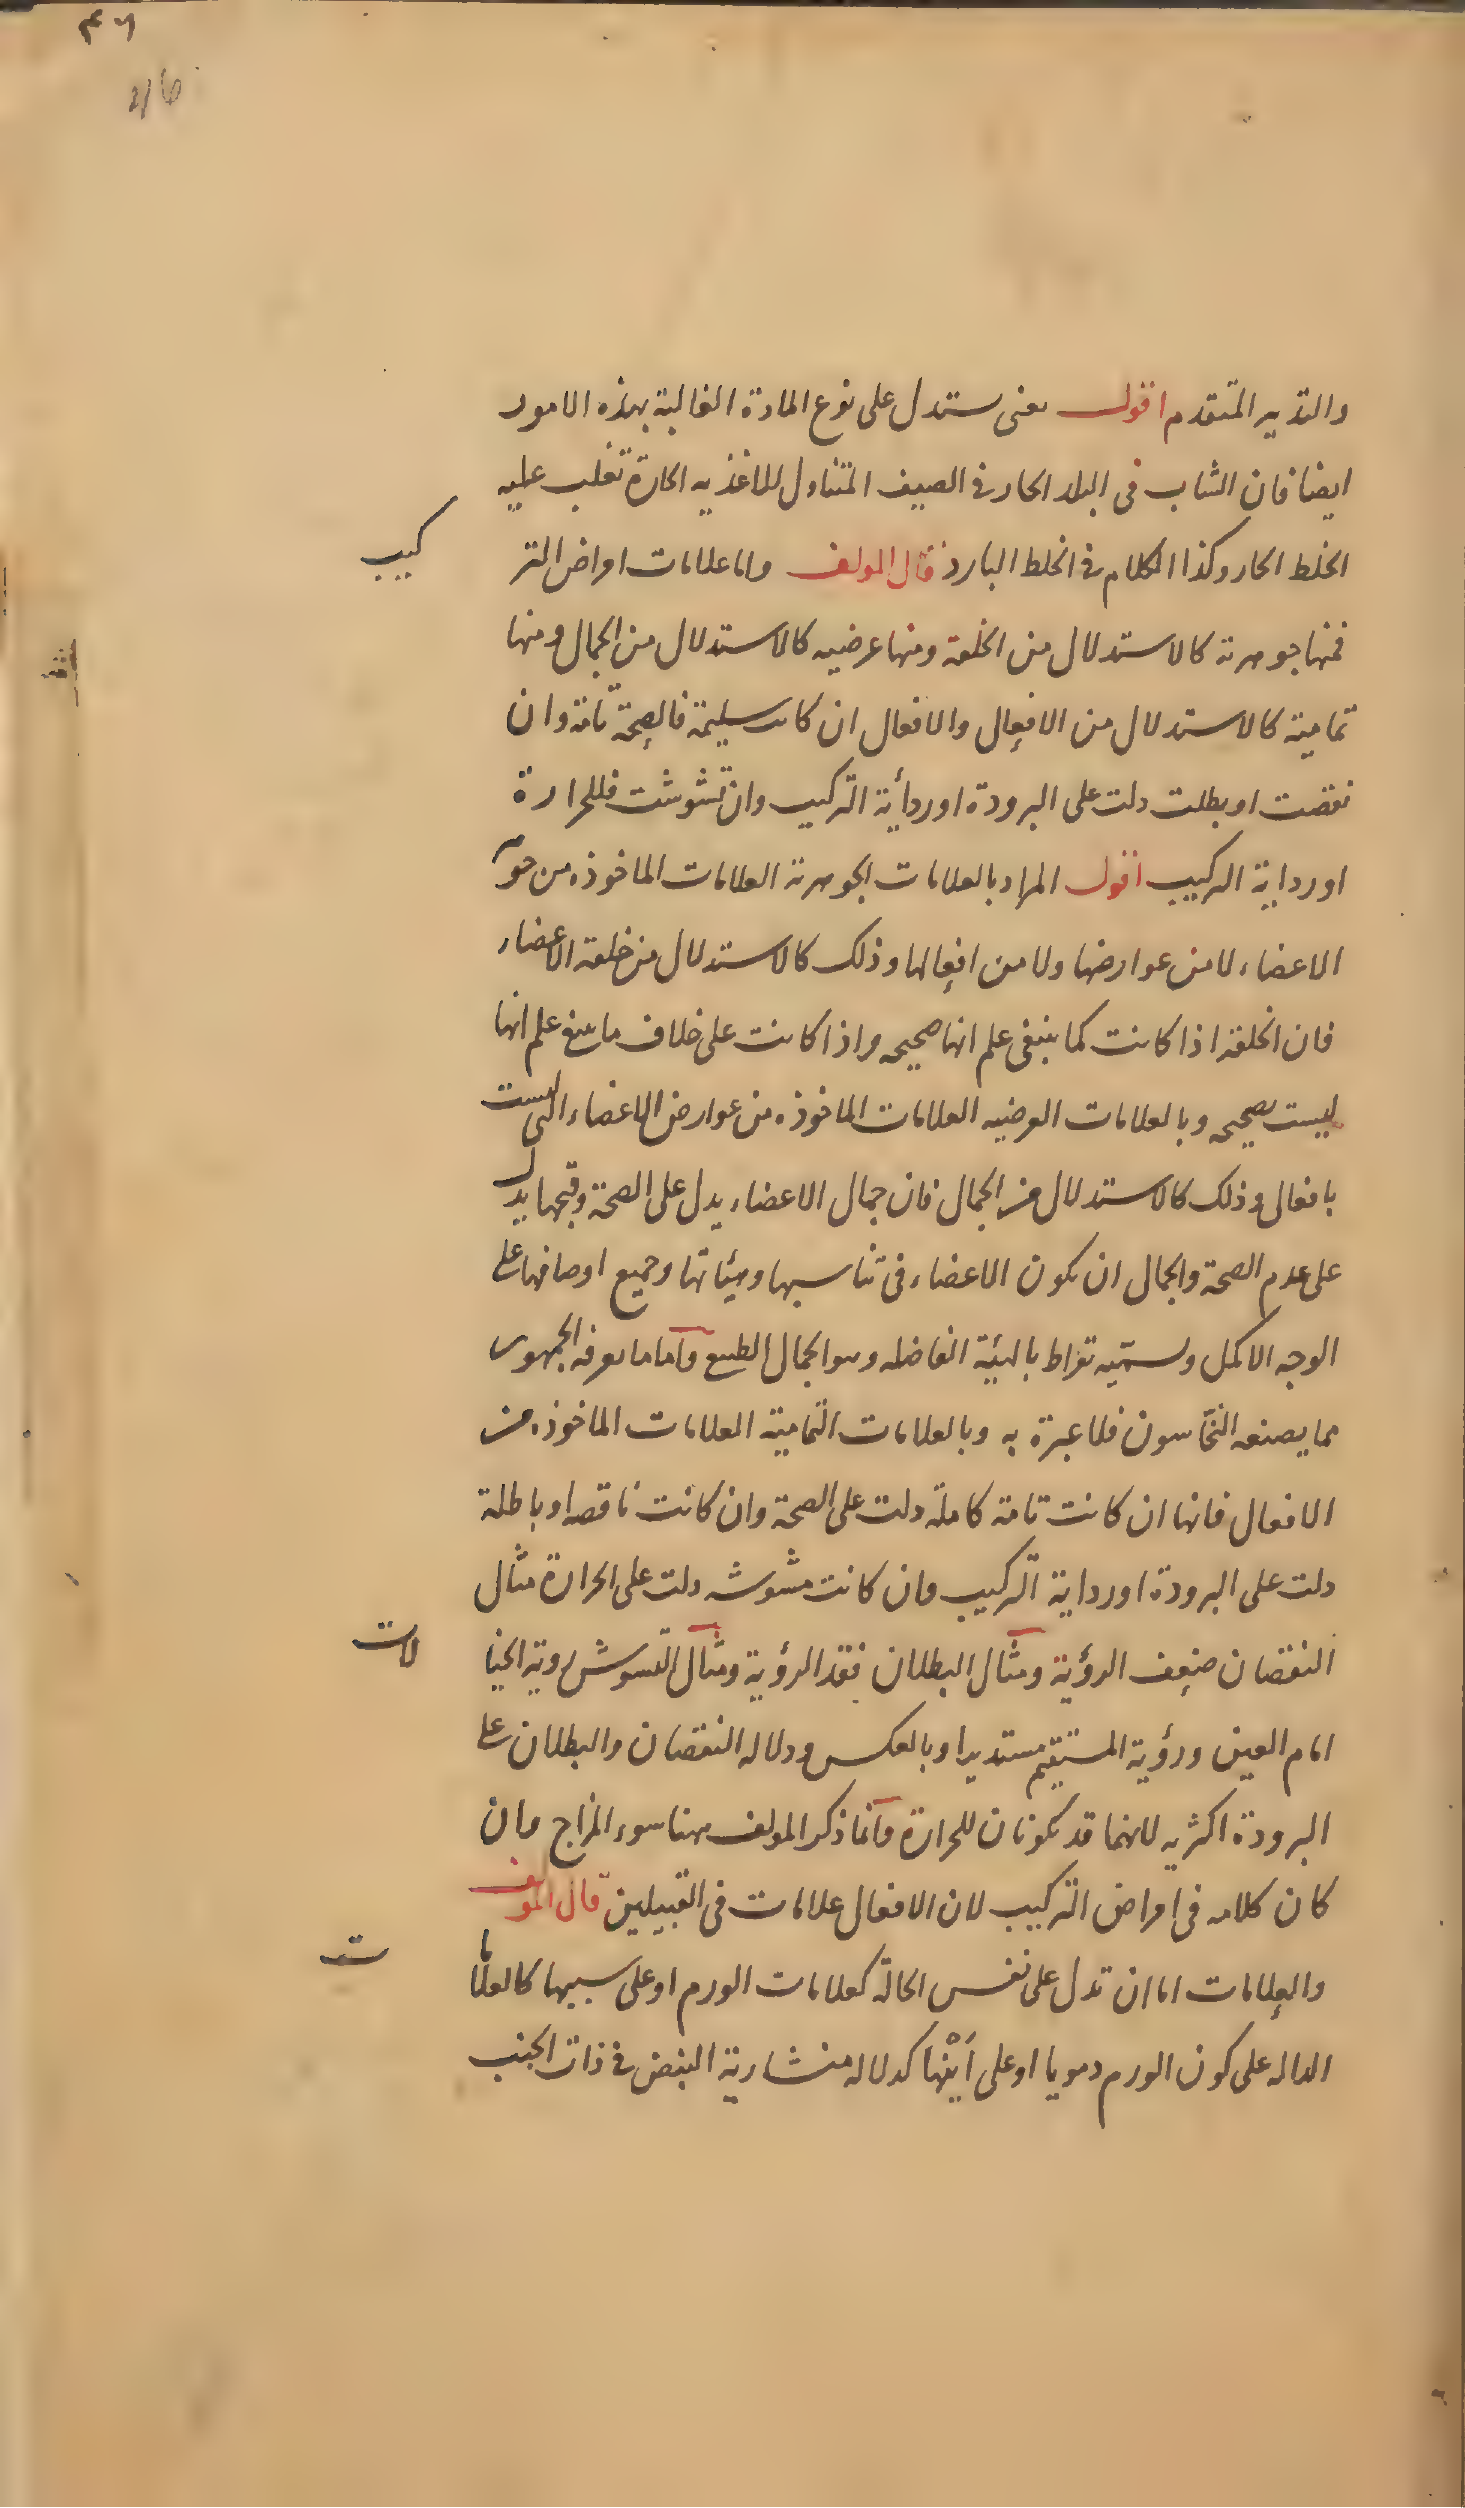 ٤٦
والتدبير المتقدم اقول يعنى يستدل على نوع المادة الغالبة بهذه الامور
ايضا فان الشاب فى البلد الحار فى الصيف المتناول للاغذيه الحارة تغلب عليه
الخلط الحار وكذا الكلام فى الخلط البارد قال المولف واما علامات امراض التر
كيب
فمنها جوهرية كالاستدلال من الخلقة ومنها عرضيه كالاستدلال من الجمال ومنها
تمامية كالاستدلال من الافعال والافعال ان كانت سليمة فالصحة تامة وان
نقصت او بطلت دلت على البرودة او ردأية التركيب وان تشوشت فللحرارة
او رداية التركيب اقول المراد بالعلامات الجوهرية العلامات الماخوذه من جو
الاعضاء لا من عوارضها ولا من افعالها وذلك كالاستدلال من خلقة الاعضاء
فان الخلقة اذا كانت كما ينبغى علم انها صحيحه واذا كانت على خلاف ما ينبغى علم انها
ليست بصحيحه وبالعلامات العرضيه العلامات الماخوذه من عوارض الاعضاء التى ليست
بافعال وذلك كالاستدلال من الجمال فان جمال الاعضاء يدل على الصحة وقبحها يدل
على عدم الصحة والجمال ان يكون الاعضاء فى تناسبها وهيئاتها وجميع اوصافها على
الوجه الاكمل ولسمّيه بقراط بالهيئة الفاضله وهو الجمال الطبيعى واما ما يعرفه الجمهور
مما يصنعه النخّاسون فلا عبرة به وبالعلامات التمامية العلامات الماخوذه من
الافعال فانها ان كانت تامة كاملة دلت على الصحة وان كانت ناقصه او باطلة
دلت على البرودة او رداية التركيب وان كانت مشوشه دلت على الحرارة مثال
النقصان ضعف الرؤية ومثال البطلان فقد الرؤية ومثال التشوش روية الخيا
لات
امام العين ورؤية المستقيم مستديرا وبالعكس ودلاله النقصان والبطلان على
البرودة اكثريه لانهما قد يكونان للحرارة وانما ذكر المولف هنا سوء المزاج وان
كان كلامه فى امراض التركيب لان الافعال علامات فى القبيلين قال المولف
والعلامات اما ان تدل على نفس الحالة كعلامات الورم او على سببها كالعلاما
ت
الداله على كون الورم دمويا او على اَيْنِها كدلاله منشارية النبض فى ذات الجنب